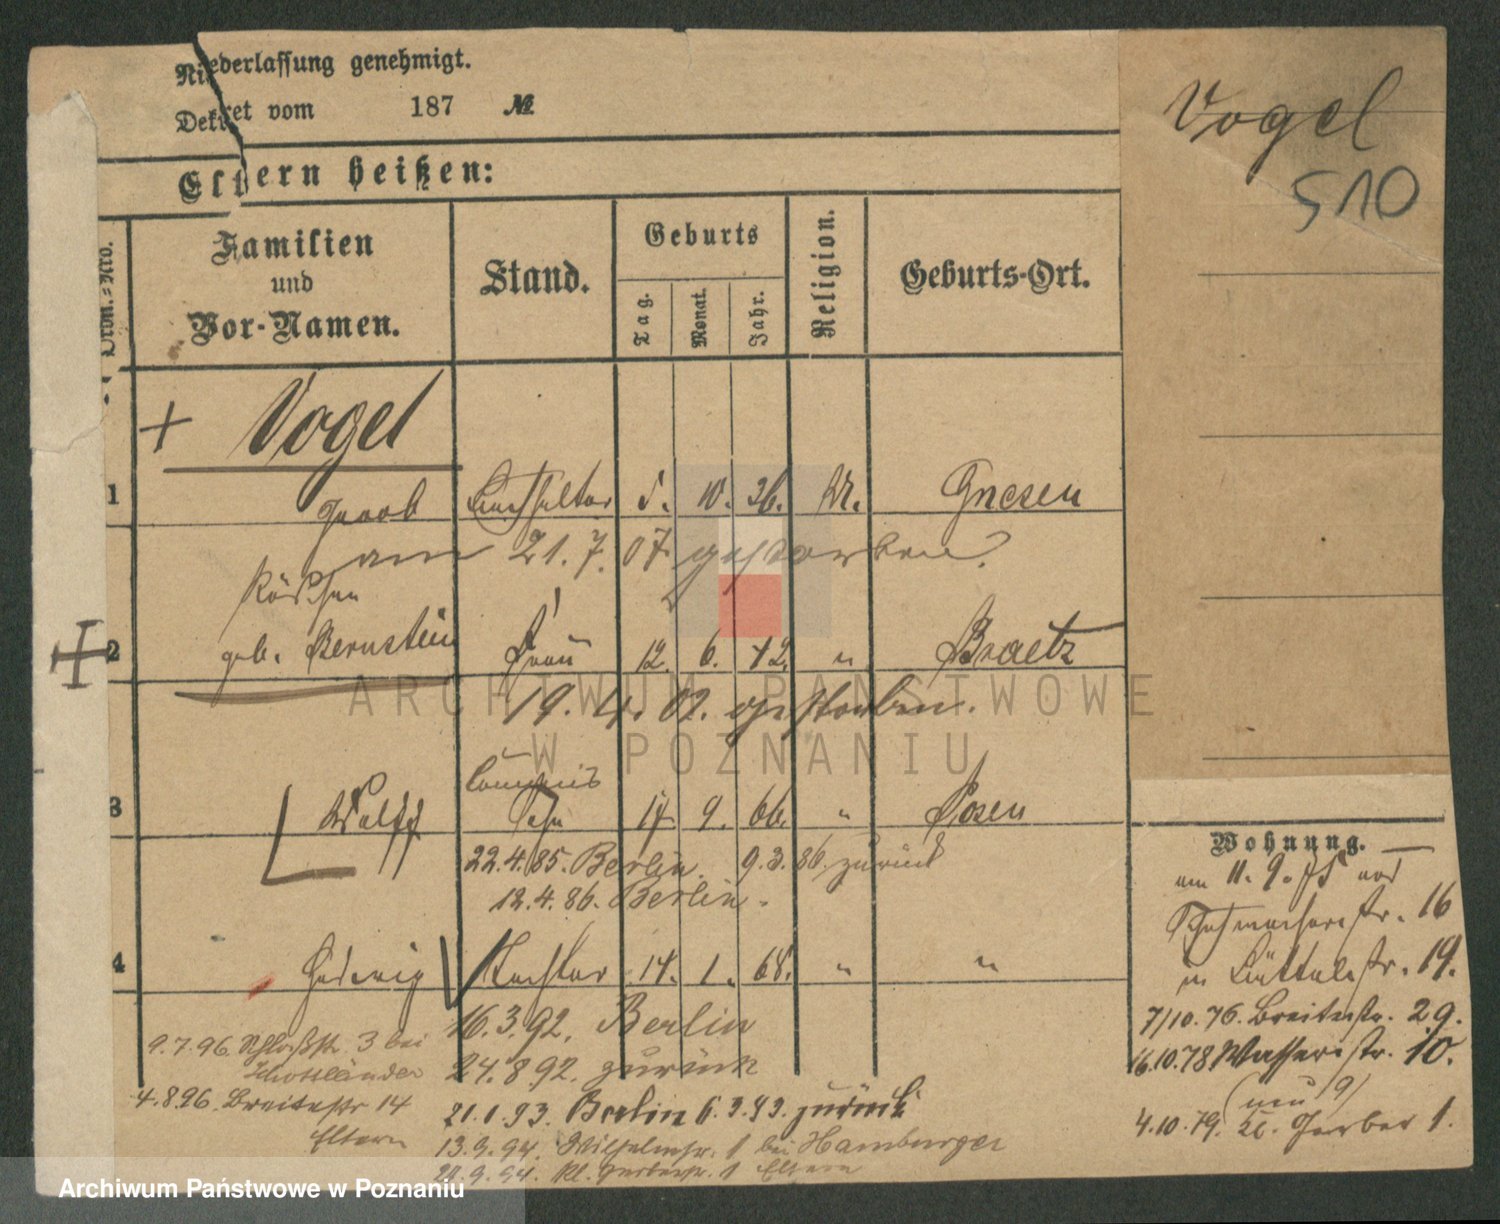 Niederlassung genehmigt.
Dekret vom 187 №
Vogel
510
Eltern heißen:
Ordn.-Nro.
Familien
und
Vor-Namen.
Stand.
Geburts
Tag.
Monat.
Jahr.
Religion.
Geburts-Ort.
+ Vogel
1 Jacob Buchhalter 5. 10. 36. M. Gnesen
am 21.7.07 gestorben.
Röschen
2 geb. Bernstein Frau 12. 6. 42. " Braetz
19. 4. 02. gestorben.
3 Wolff Sohn 17. 9. 66. " Posen
22.4.85. Berlin. 9.3.86. zurück
12.4.86. Berlin.
4 Hedwig Tochter 14. 1. 68. " "
16.3.92. Berlin
24.8.92. zurück
21.1.93. Berlin 6.3.93. zurück
13.9.94. Wilhelmstr. 1 bei Hamburger
9.94. Kl. Gerberstr. 1 Eltern
9.7.96. Schloßstr. 3 bei
Schottländer
4.8.96. Breitestr 14
Eltern
Wohnung.
am 11. 9.
Schuhmacherstr. 16
in Büttelstr. 19.
7/10.76. Breitestr. 29.
16.10.78 Wasserstr. 10.
(neu 9)
4.10.79. Kl. Gerber 1.
ARCHIWUM PAŃSTWOWE
W POZNANIU
Archiwum Państwowe w Poznaniu